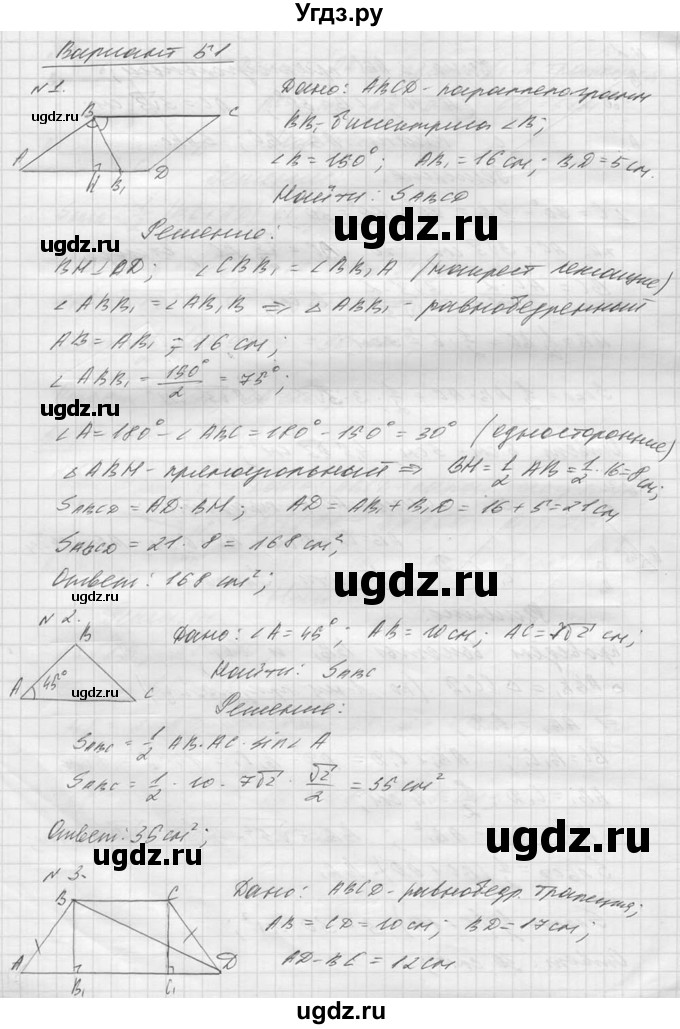 Угдз.ру
Вариант Б1
№1.
Дано: ABCD - параллелограмм
BB₁ - биссектриса ∠B;
∠B = 150°; AB₁ = 16 см; B₁D = 5 см.
Найти: S ABCD
B C
A H B₁ D
Решение:
BH⊥AD; ∠CBB₁ = ∠BB₁A (накрест лежащие)
∠ABB₁ = ∠AB₁B ⇒ △ABB₁ - равнобедренный
AB = AB₁ = 16 см;
∠ABB₁ = 150°/2 = 75°;
∠A = 180° - ∠ABC = 180° - 150° = 30° (односторонние)
△ABH - прямоугольный ⇒ BH = 1/2 AB = 1/2 · 16 = 8 см;
S ABCD = AD · BH; AD = AB₁ + B₁D = 16 + 5 = 21 см
S ABCD = 21 · 8 = 168 см²;
Ответ: 168 см²;
№2.
Дано: ∠A = 45°; AB = 10 см; AC = 7√2 см;
Найти: S ABC
B
A 45° C
Решение:
S ABC = 1/2 AB · AC · sin∠A
S ABC = 1/2 · 10 · 7√2 · √2/2 = 35 см²
Ответ: 35 см²;
№3.
Дано: ABCD - равнобедр. трапеция;
AB = CD = 10 см; BD = 17 см;
AD - BC = 12 см
B C
A B₁ C₁ D
ugdz.ru
ugdz.ru
ugdz.ru
ugdz.ru
ugdz.ru
ugdz.ru
ugdz.ru
ugdz.ru
ugdz.ru
ugdz.ru
ugdz.ru
ugdz.ru
ugdz.ru